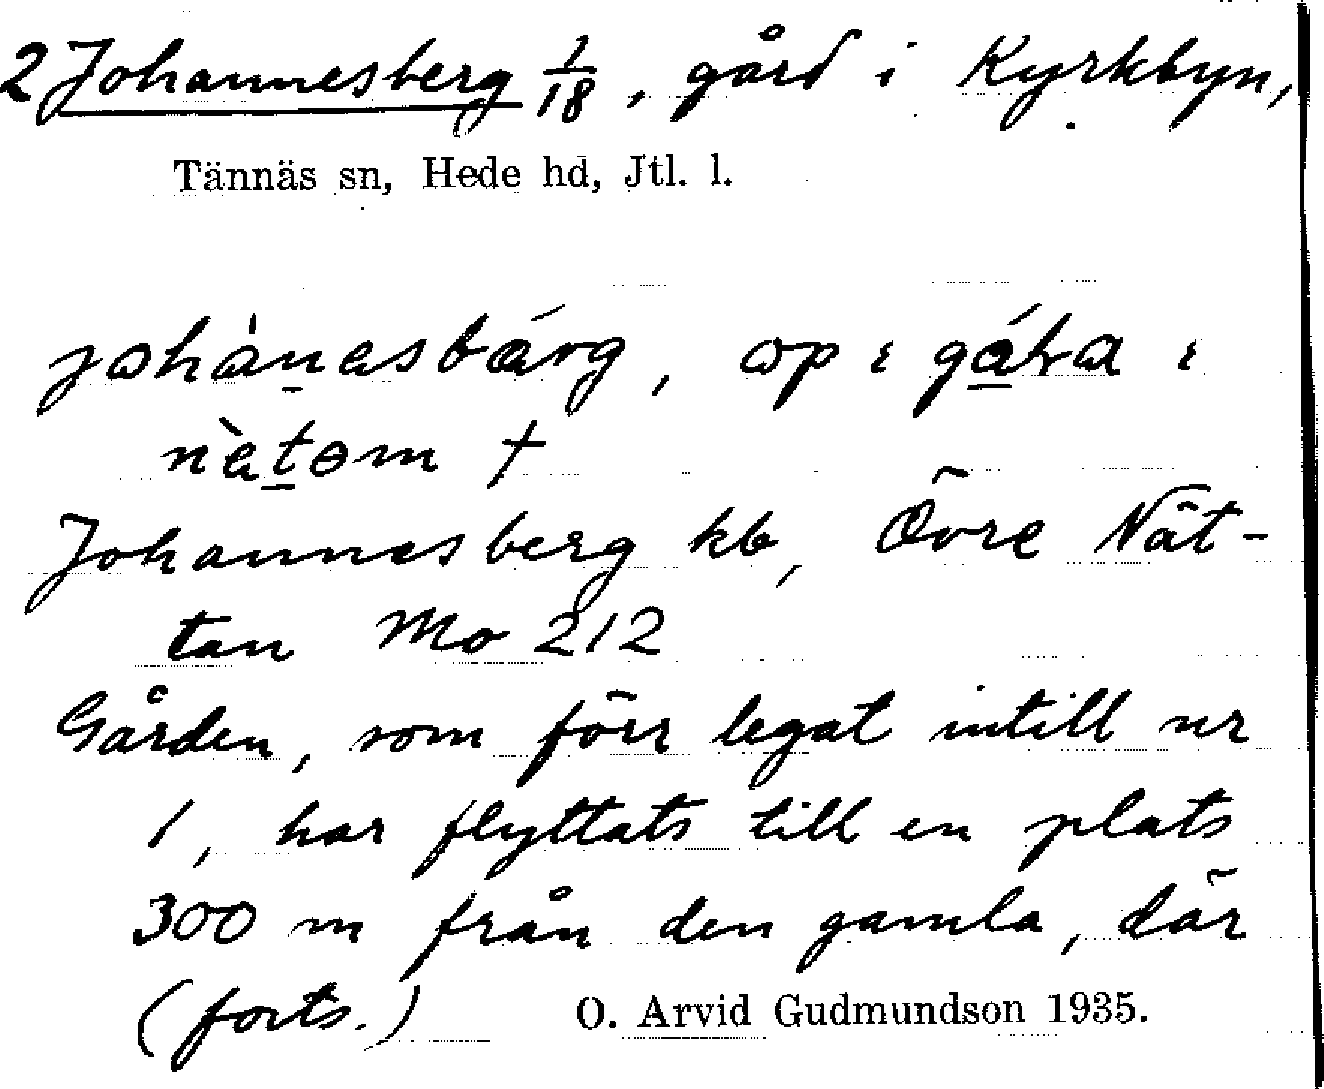 2 Johannesberg 1/18, gård i Kyrkbyn,
Tännäs sn, Hede hd, Jtl. l.
johànesbárg, op ɩ gáƚa ɩ
nètɵm †
Johannesberg kb, Övre Nät-
tan Mo 212
Gården, som förr legat intill nr
1, har flyttats till en plats
300 m från den gamla, där
(forts.) O. Arvid Gudmundson 1935.